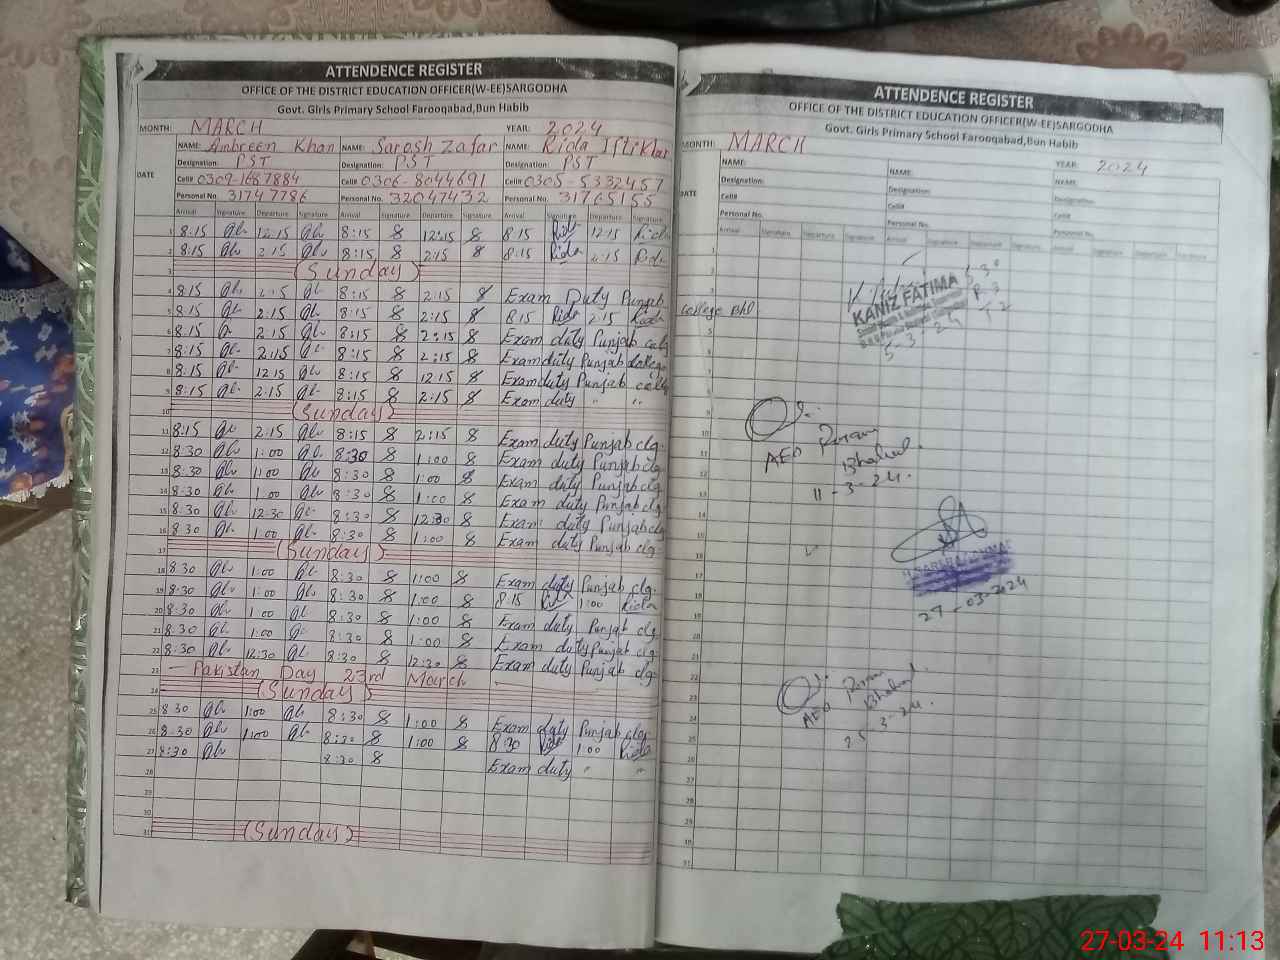 ATTENDENCE REGISTER
OFFICE OF THE DISTRICT EDUCATION OFFICER(W-EE)SARGODHA
Govt. Girls Primary School Farooqabad,Bun Habib
MONTH: MARCH YEAR: 2024
NAME: Ambreen Khan NAME: Sarosh Zafar NAME: Rida Iftikhar
Designation: PST Designation: PST Designation: PST
DATE
Cell# 0309-1687884 Cell# 0306-8044691 Cell# 0305-5332457
Personal No. 31747786 Personal No. 32047432 Personal No. 31765155
Arrival Signature Departure Signature Arrival Signature Departure Signature Arrival Signature Departure Signature
1 8:15 12:15 8:15 12:15 8:15 Rida 12:15 Rida
2 8:15 2:15 8:15 2:15 8:15 Rida 2:15 Rida
3 (Sunday)
4 8:15 2:15 8:15 2:15 Exam Duty Punjab College Bhl
5 8:15 2:15 8:15 2:15 8:15 Rida 2:15 Rida
6 8:15 2:15 8:15 2:15 Exam duty Punjab
7 8:15 2:15 8:15 2:15 Exam duty Punjab College
8 8:15 12:15 8:15 12:15 Exam duty Punjab
9 8:15 2:15 8:15 2:15 Exam duty " "
10 (Sunday)
11 8:15 2:15 8:15 2:15 Exam duty Punjab clg.
12 8:30 1:00 8:30 1:00 Exam duty Punjab clg.
13 8:30 1:00 8:30 1:00 Exam duty Punjab clg
14 8:30 1:00 8:30 1:00 Exam duty Punjab clg
15 8:30 12:30 8:30 12:30 Exam duty Punjab clg
16 8:30 1:00 8:30 1:00 Exam duty Punjab clg.
17 (Sunday)
18 8:30 1:00 8:30 1:00 Exam duty Punjab clg.
19 8:30 1:00 8:30 1:00 8:15 Rida 1:00 Rida
20 8:30 1:00 8:30 1:00 Exam duty Punjab clg.
21 8:30 1:00 8:30 1:00 Exam duty Punjab clg.
22 8:30 12:30 8:30 12:30 Exam duty Punjab clg.
23 — Pakistan Day 23rd March -
24 (Sunday)
25 8:30 1:00 8:30 1:00 Exam duty Punjab clg.
26 8:30 1:00 8:30 1:00 8:30 Rida 1:00 Rida
27 8:30 8:30 Exam duty " "
28
30
31 (Sunday)
ATTENDENCE REGISTER
OFFICE OF THE DISTRICT EDUCATION OFFICER(W-EE)SARGODHA
Govt. Girls Primary School Farooqabad,Bun Habib
MONTH: MARCH YEAR: 2024
NAME: NAME: NAME:
Designation: Designation: Designation:
DATE
Cell# Cell# Cell#
Personal No. Personal No. Personal No.
Arrival Signature Departure Signature Arrival Signature Departure Signature Arrival Signature Departure Signature
KANIZ FATIMA
5-3-24
AEO
11-3-24.
27-03-2024
AEO
25-3-24.
27-03-24 11:13